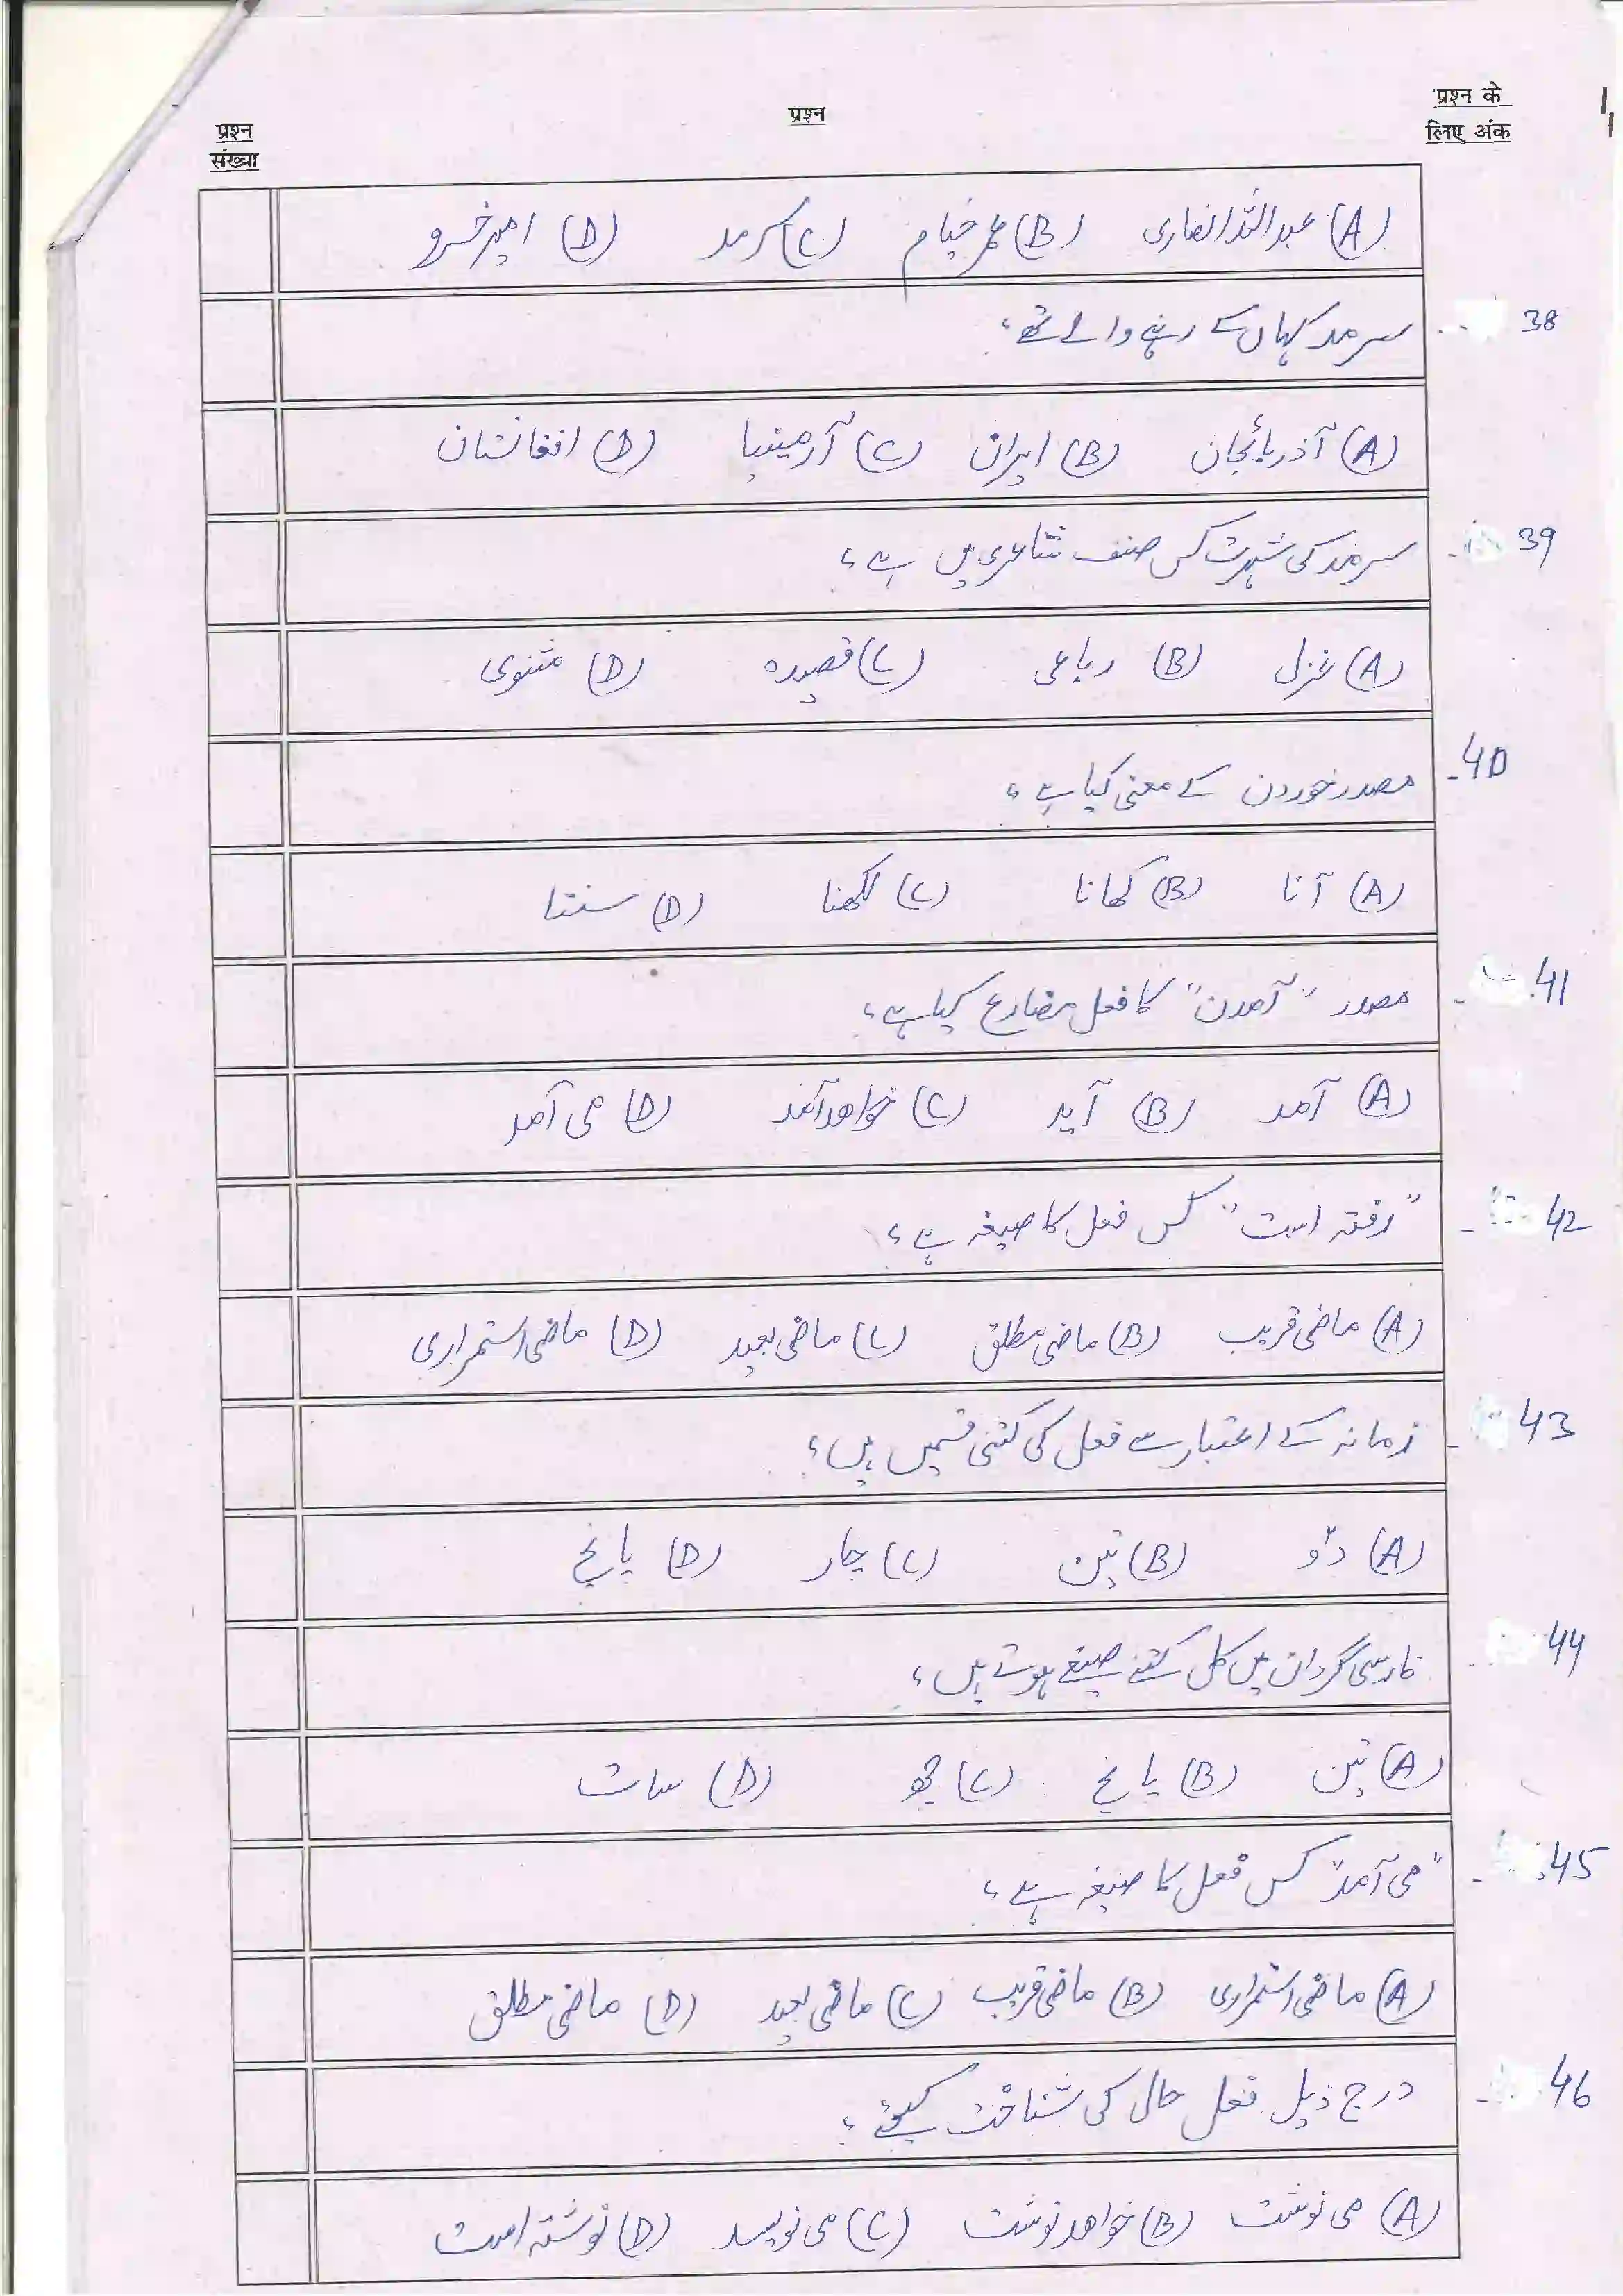 प्रश्न के
लिए अंक
प्रश्न
प्रश्न
संख्या
(A) عبداللہ انصاری (B) عمر خیام (C) سرمد (D) امیر خسرو
38 - سرمد کہاں کے رہنے والے تھے؟
(A) آذربائیجان (B) ایران (C) آرمینیا (D) افغانستان
39 - سرمد کی شہرت کس صنف شاعری میں ہے؟
(A) غزل (B) رباعی (C) قصیدہ (D) مثنوی
40 - مصدر خوردن کے معنی کیا ہے؟
(A) آنا (B) کھانا (C) لکھنا (D) سننا
41 - مصدر "آمدن" کا فعل مضارع کیا ہے؟
(A) آمد (B) آید (C) خواهد آمد (D) می آمد
42 - "رفتہ است" کس فعل کا صیغہ ہے؟
(A) ماضی قریب (B) ماضی مطلق (C) ماضی بعید (D) ماضی استمراری
43 - زمانہ کے اعتبار سے فعل کی کتنی قسمیں ہیں؟
(A) دو (B) تین (C) چار (D) پانچ
44 - فارسی گردان میں کل کتنے صیغے ہوتے ہیں؟
(A) تین (B) پانچ (C) چھ (D) سات
45 - "می آمد" کس فعل کا صیغہ ہے؟
(A) ماضی استمراری (B) ماضی قریب (C) ماضی بعید (D) ماضی مطلق
46 - درج ذیل فعل حال کی شناخت کیجئے؟
(A) می نوشت (B) خواهد نوشت (C) می نویسد (D) نوشتہ است